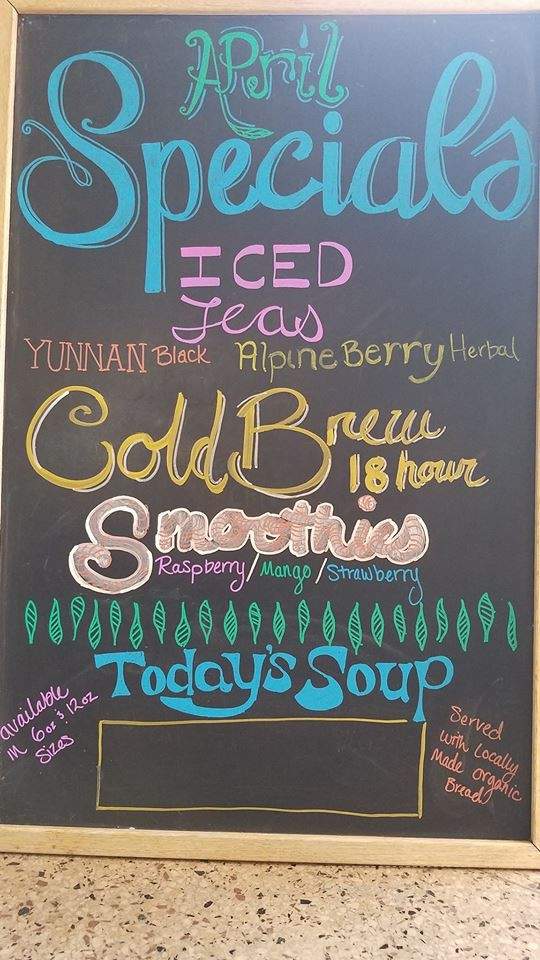 April
Specials
ICED
Teas
YUNNAN Black Alpine Berry Herbal
Cold Brew
18 hour
Smoothies
Raspberry/Mango/Strawberry
Today's Soup
available
in 6oz & 12oz
Sizes
Served
with Locally
Made organic
Bread